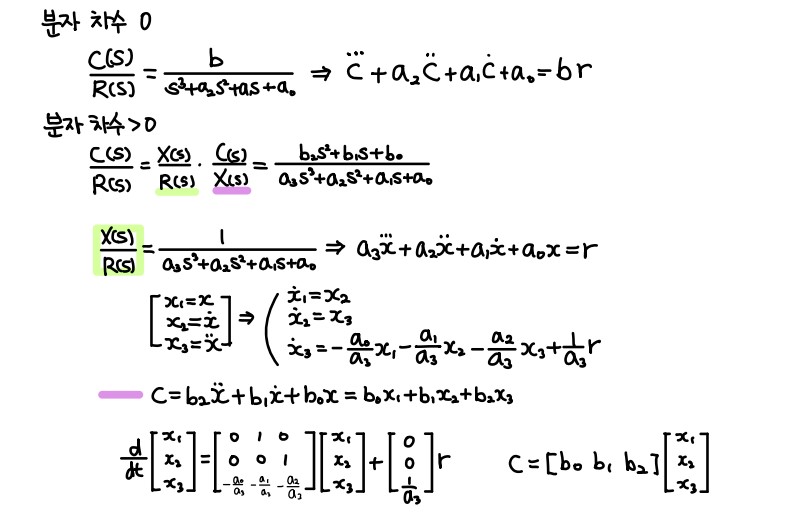 분자 차수 0
C(s)/R(s) = b/(s³+a₂s²+as+a₀) ⇒ c⃛+a₂c̈+a₁ċ+a₀=br
분자 차수>0
C(s)/R(s) = X(s)/R(s) · C(s)/X(s) = (b₂s²+b₁s+b₀)/(a₃s³+a₂s²+a₁s+a₀)
X(s)/R(s) = 1/(a₃s³+a₂s²+a₁s+a₀) ⇒ a₃x⃛+a₂ẍ+a₁ẋ+a₀x=r
[x₁=x ⇒ ( ẋ₁=x₂
x₂=ẋ ẋ₂=x₃
x₃=ẍ] ẋ₃=-a₀/a₃ x₁-a₁/a₃ x₂-a₂/a₃ x₃+1/a₃ r
C=b₂ẍ+b₁ẋ+b₀x=b₀x₁+b₁x₂+b₂x₃
d/dt [x₁ x₂ x₃] = [0 1 0 0 0 1 -a₀/a₃ -a₁/a₃ -a₂/a₃] [x₁ x₂ x₃] + [0 0 1/a₃] r C=[b₀ b₁ b₂] [x₁ x₂ x₃]